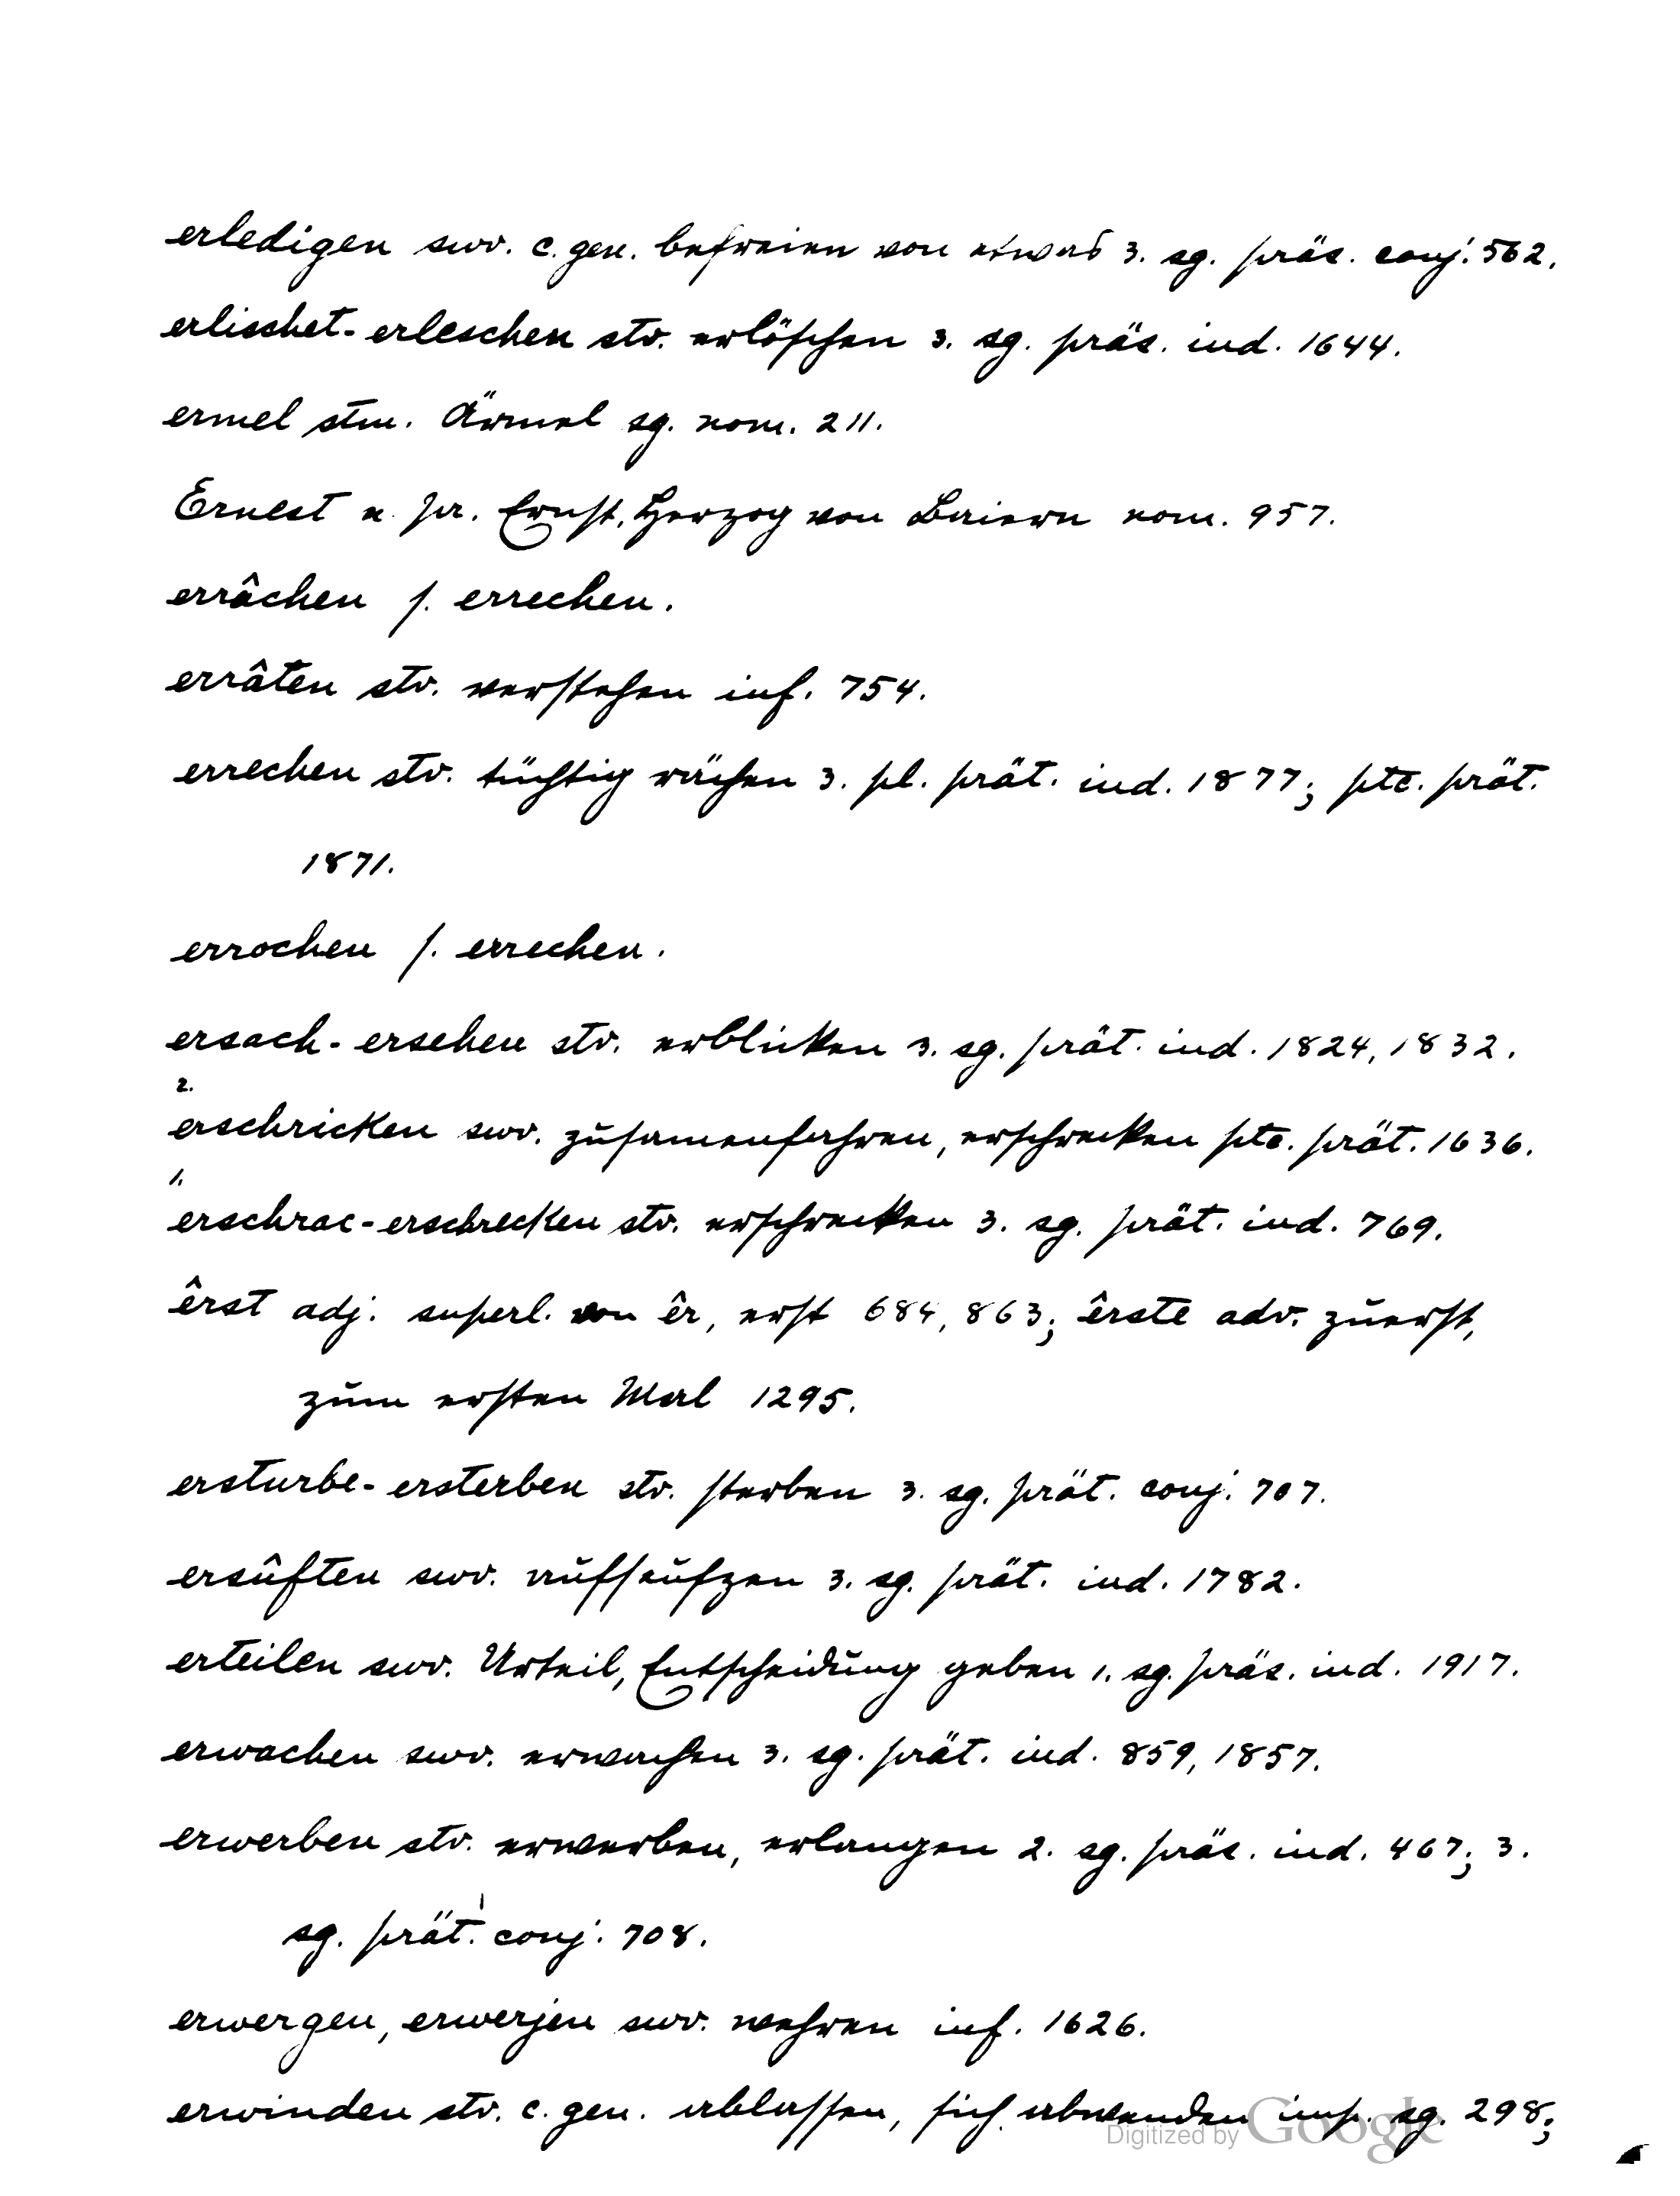 erledigen swv. c. gen. befreien von etwas 3. sg. präs. conj. 562.
erlischet - erleschen stv. erlöschen 3. sg. präs. ind. 1644.
ermel stm. Ärmel sg. nom. 211.
Ernest n. pr. Ernst, Herzog von Baiern nom. 957.
errâchen s. errechen.
errâten stv. verstehen inf. 754.
errechen stv. tüchtig rächen 3. pl. prät. ind. 1877; ptc. prät.
1871.
errochen s. errechen.
ersach - ersehen stv. erblicken 3. sg. prät. ind. 1824, 1832.
2.
erschricken swv. zusamenfahren, erschrecken ptc. prät. 1636.
1.
erschrac - erschrecken stv. erschrecken 3. sg. prät. ind. 769.
êrst adj. superl. von êr, erst 684, 863; êrste adv. zuerst,
zum ersten Mal 1295.
ersturbe - ersterben stv. sterben 3. sg. prät. conj. 707.
ersûften swv. aufseufzen 3. sg. prät. ind. 1782.
erteilen swv. Urteil, Entscheidung geben 1. sg. präs. ind. 1917.
erwachen swv. erwachen 3. sg. prät. ind. 859, 1857.
erwerben stv. erwerben, erlangen 2. sg. präs. ind. 467; 3.
sg. prät. conj. 708.
erwergen, erwerjen swv. wehren inf. 1626.
erwinden stv. c. gen. ablassen, sich abwenden imp. sg. 298;
Digitized by Google